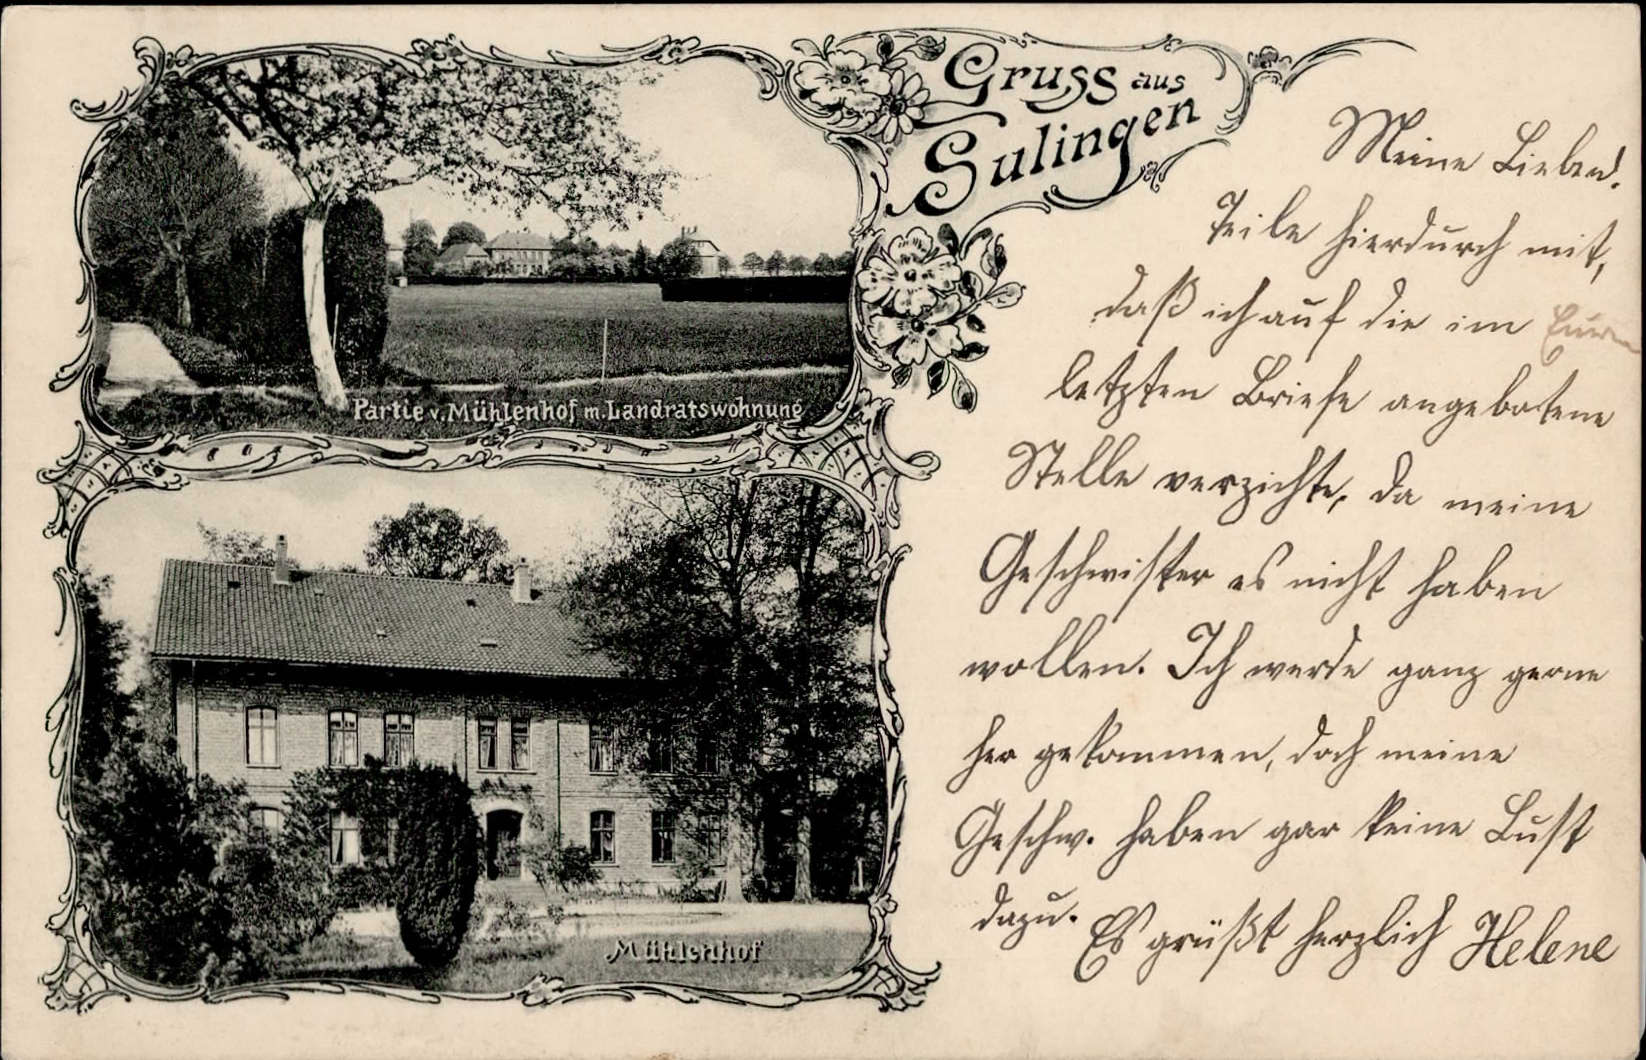 Gruss aus
Sulingen
Partie v. Mühlenhof m. Landratswohnung
Mühlenhof
Meine Lieben.
Teile hierdurch mit,
daß ich auf die im Euren
letzten Briefe angebotene
Stelle verzichte, da meine
Geschwister es nicht haben
wollen. Ich werde ganz gerne
her gekommen, doch meine
Geschw. haben gar keine Lust
dazu. Es grüßt herzlich Helene